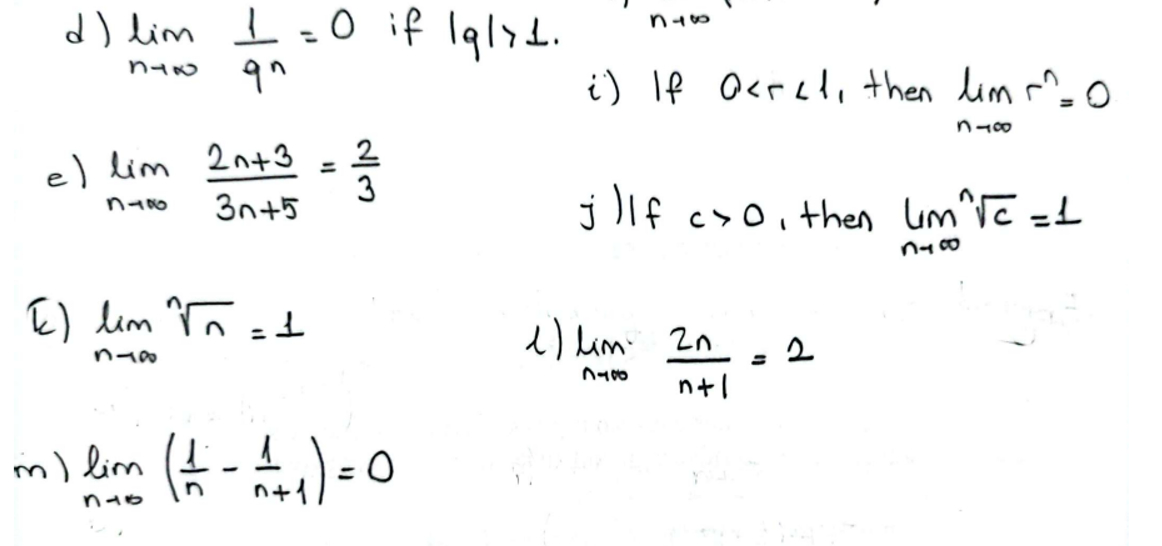 d) lim_{n→∞} 1/qⁿ = 0 if |q|>1.
n→∞
i) If 0<r<1, then lim_{n→∞} rⁿ = 0
e) lim_{n→∞} (2n+3)/(3n+5) = 2/3
j) If c>0, then lim_{n→∞} ⁿ√c = 1
k) lim_{n→∞} ⁿ√n = 1
l) lim_{n→∞} 2n/(n+1) = 2
m) lim_{n→∞} (1/n - 1/(n+1)) = 0